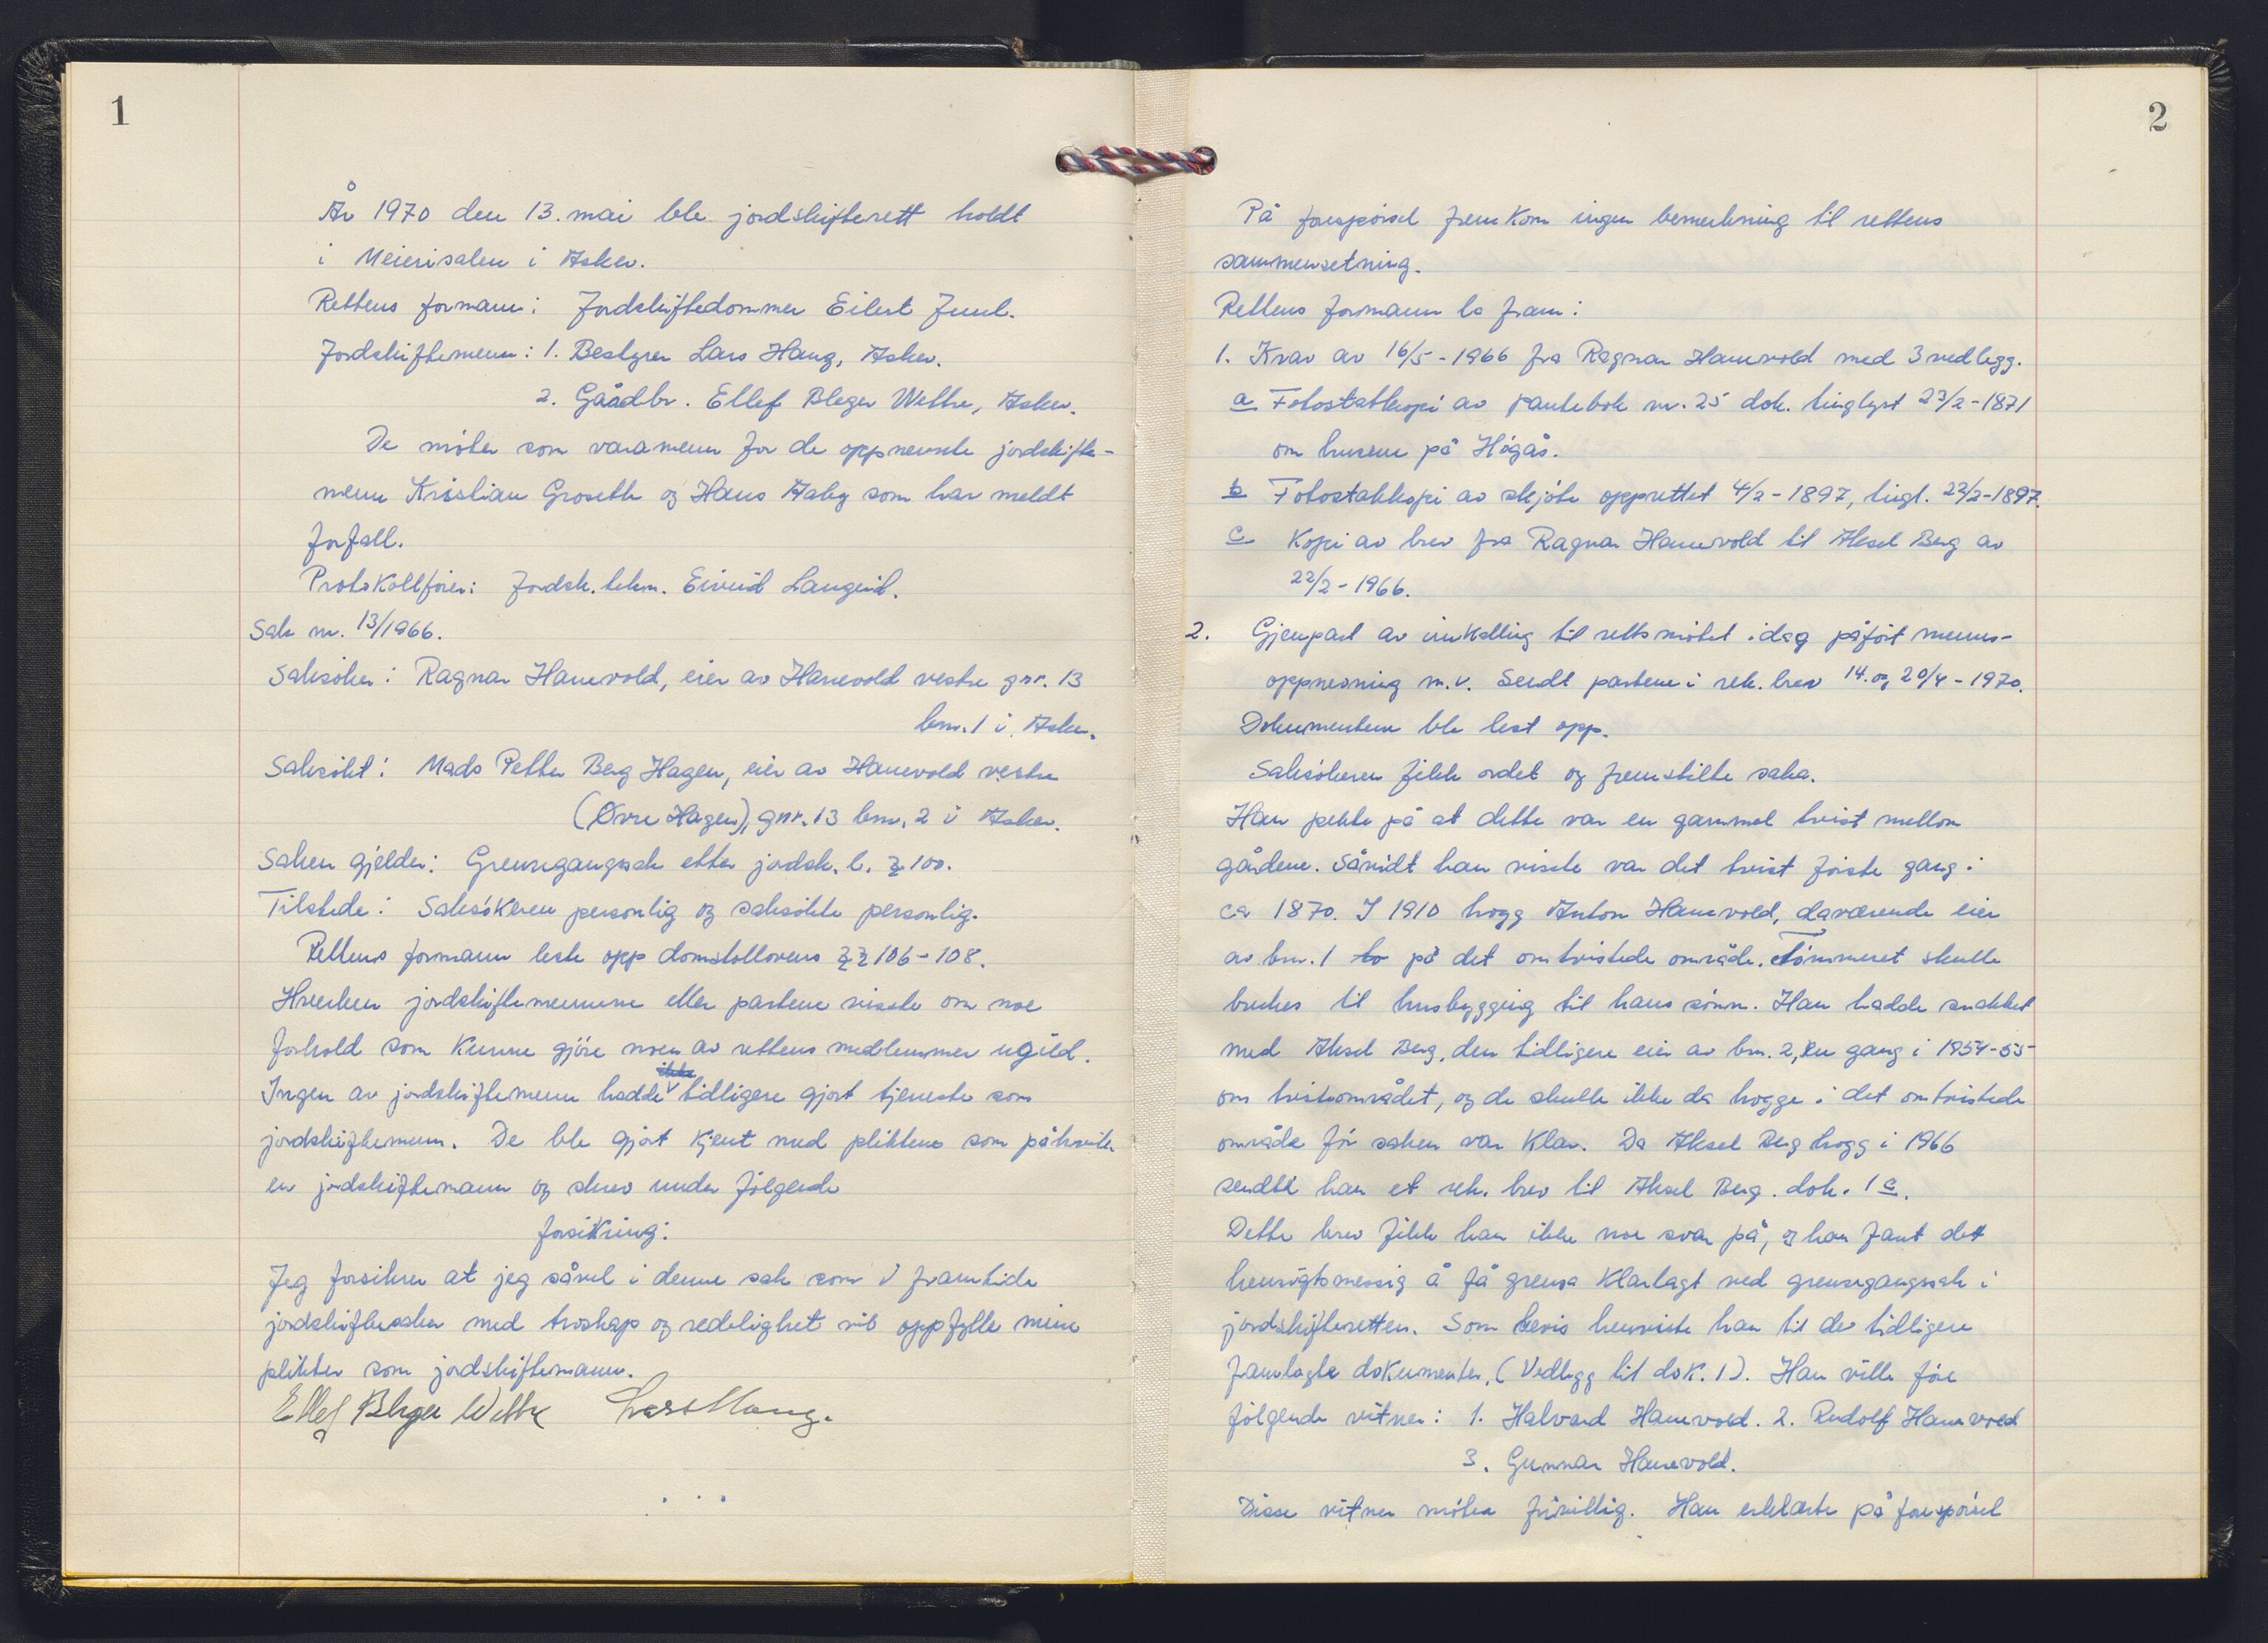 1
År 1970 den 13. mai ble jordskifterett holdt
i Meierisalen i Asker.
Rettens formann: Jordskiftedommer Eilert Juul.
Jordskiftemenn: 1. Bestyrer Lars Haug, Asker.
2. Gårdbr. Ellef Bleger Wettre, Asker.
De møter som varamenn for de oppnevnte jordskifte-
menn Kristian Groseth og Hans Aaby som har meldt
forfall.
Protokollfører: Jordsk.tekn. Eivind Langeid.
Sak nr. 13/1966.
Saksøker: Ragnar Hanevold, eier av Hanevold vestre gnr. 13
bnr. 1 i Asker.
Saksøkt: Mads Petter Berg Hagen, eier av Hanevold vestre
(Øvre Hagen), gnr. 13 bnr. 2 i Asker.
Saken gjelder: Grensegangssak etter jordsk. l. § 100.
Tilstede: Saksøkeren personlig og saksøkte personlig.
Rettens formann leste opp domstollovens §§ 106-108.
Hverken jordskiftemennene eller partene visste om noe
forhold som kunne gjøre noen av rettens medlemmer ugild.
ikke
Ingen av jordskiftemenn hadde tidligere gjort tjeneste som
jordskiftemenn. De ble gjort kjent med pliktene som påhviler
en jordskiftemann og skrev under følgende
forsikring:
Jeg forsikrer at jeg såvel i denne sak som i framtide
jordskiftesaker med troskap og redelighet vil oppfylle mine
plikter som jordskiftemann.
Ellef Bleger Wettre Lars Haug.
2
På forespørsel fremkom ingen bemerkning til rettens
sammensetning.
Rettens formann la fram:
1. Krav av 16/5-1966 fra Ragnar Hanevold med 3 vedlegg.
a Fotostatkopi av pantebok nr. 25 dok. tinglyst 23/2-1871
om husene på Høgås.
b Fotostatkopi av skjøte opprettet 4/2-1897, tingl. 22/2-1897.
c Kopi av brev fra Ragnar Hanevold til Aksel Berg av
22/2-1966.
2. Gjenpart av innkalling til rettsmøtet idag påført menns-
oppnevning m.v. Sendt partene i rek. brev 14. og 20/4-1970.
Dokumentene ble lest opp.
Saksøkeren fikk ordet og fremstilte saka.
Han pekte på at dette var en gammel tvist mellom
gårdene. Såvidt han visste var det tvist første gang i
ca 1870. I 1910 hogg Anton Hanevold, daværende eier
av bnr. 1 to på det omtvistede område. Tømmeret skulle
brukes til husbygging til hans sønn. Han hadde snakket
med Aksel Berg, den tidligere eier av bnr. 2, en gang i 1954-55
om tvistområdet, og de skulle ikke da hogge i det omtvistede
område før saken var klar. Da Aksel Berg hogg i 1966
sendte han et rek. brev til Aksel Berg. dok. 1 c.
Dette brev fikk han ikke noe svar på, og han fant det
hensigtsmessig å få grensa klarlagt ved grensegangssak i
jordskifteretten. Som bevis henviste han til de tidligere
framlagte dokumenter. (Vedlegg til dok. 1). Han ville føre
følgende vitner: 1. Halvard Hanevold. 2. Rudolf Hanevold
3. Gunnar Hanevold.
Disse vitner møter frivillig. Han erklærte på forespørsel